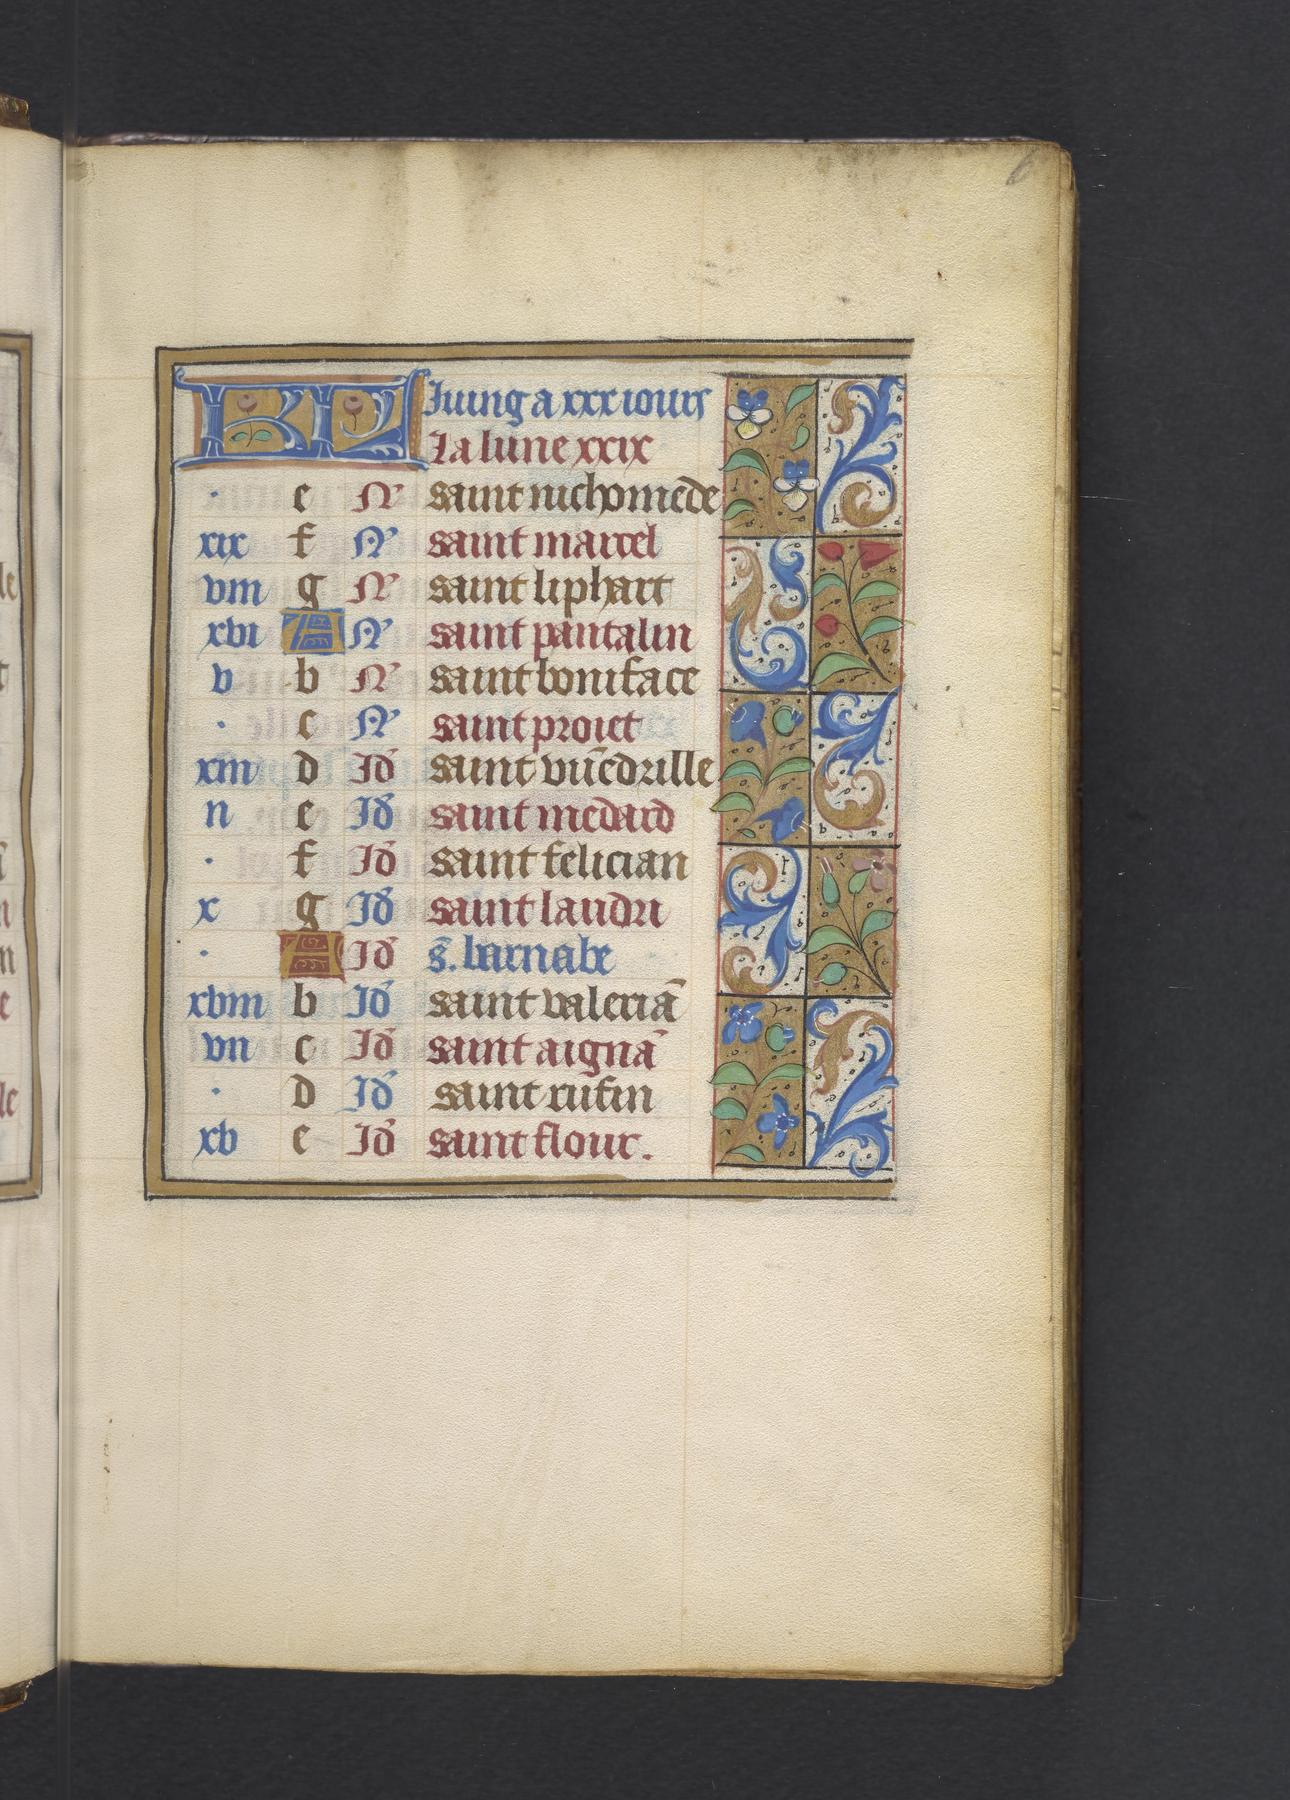 6
KL Iuing a xxx iours
La lune xxix
· e N saint nichomede
xix f N saint marcel
viii g N saint liphart
xvi A N saint pantalin
v b N saint boniface
· c N saint proiet
xiii d Id saint vūedrille
ii e Id saint medard
· f Id saint felician
x g Id saint landri
· A Id s̄. barnabe
xviii b Id saint valeriā
vii c Id saint aignā
· d Id saint rufin
xv e Id saint flour.